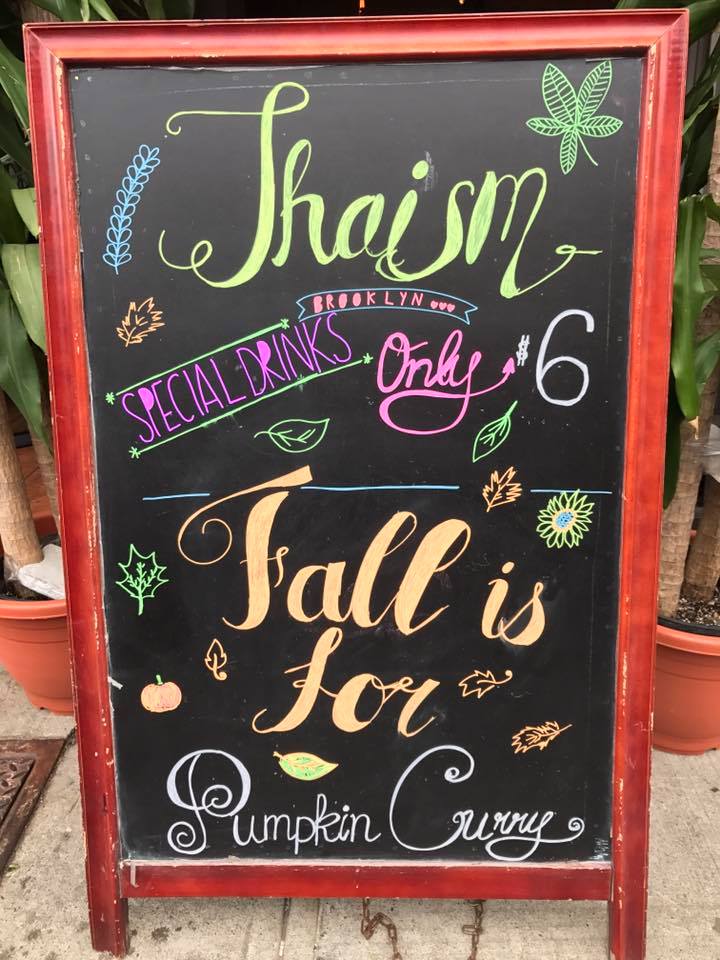 Thaism
BROOKLYN
SPECIAL DRINKS Only $6
Fall is
For
Pumpkin Curry